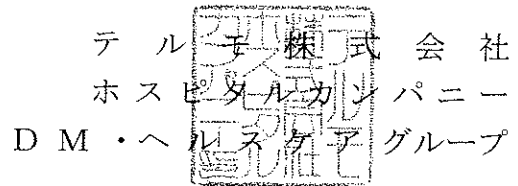 テルモ株式会社
ホスピタルカンパニー
DM・ヘルスケアグループ